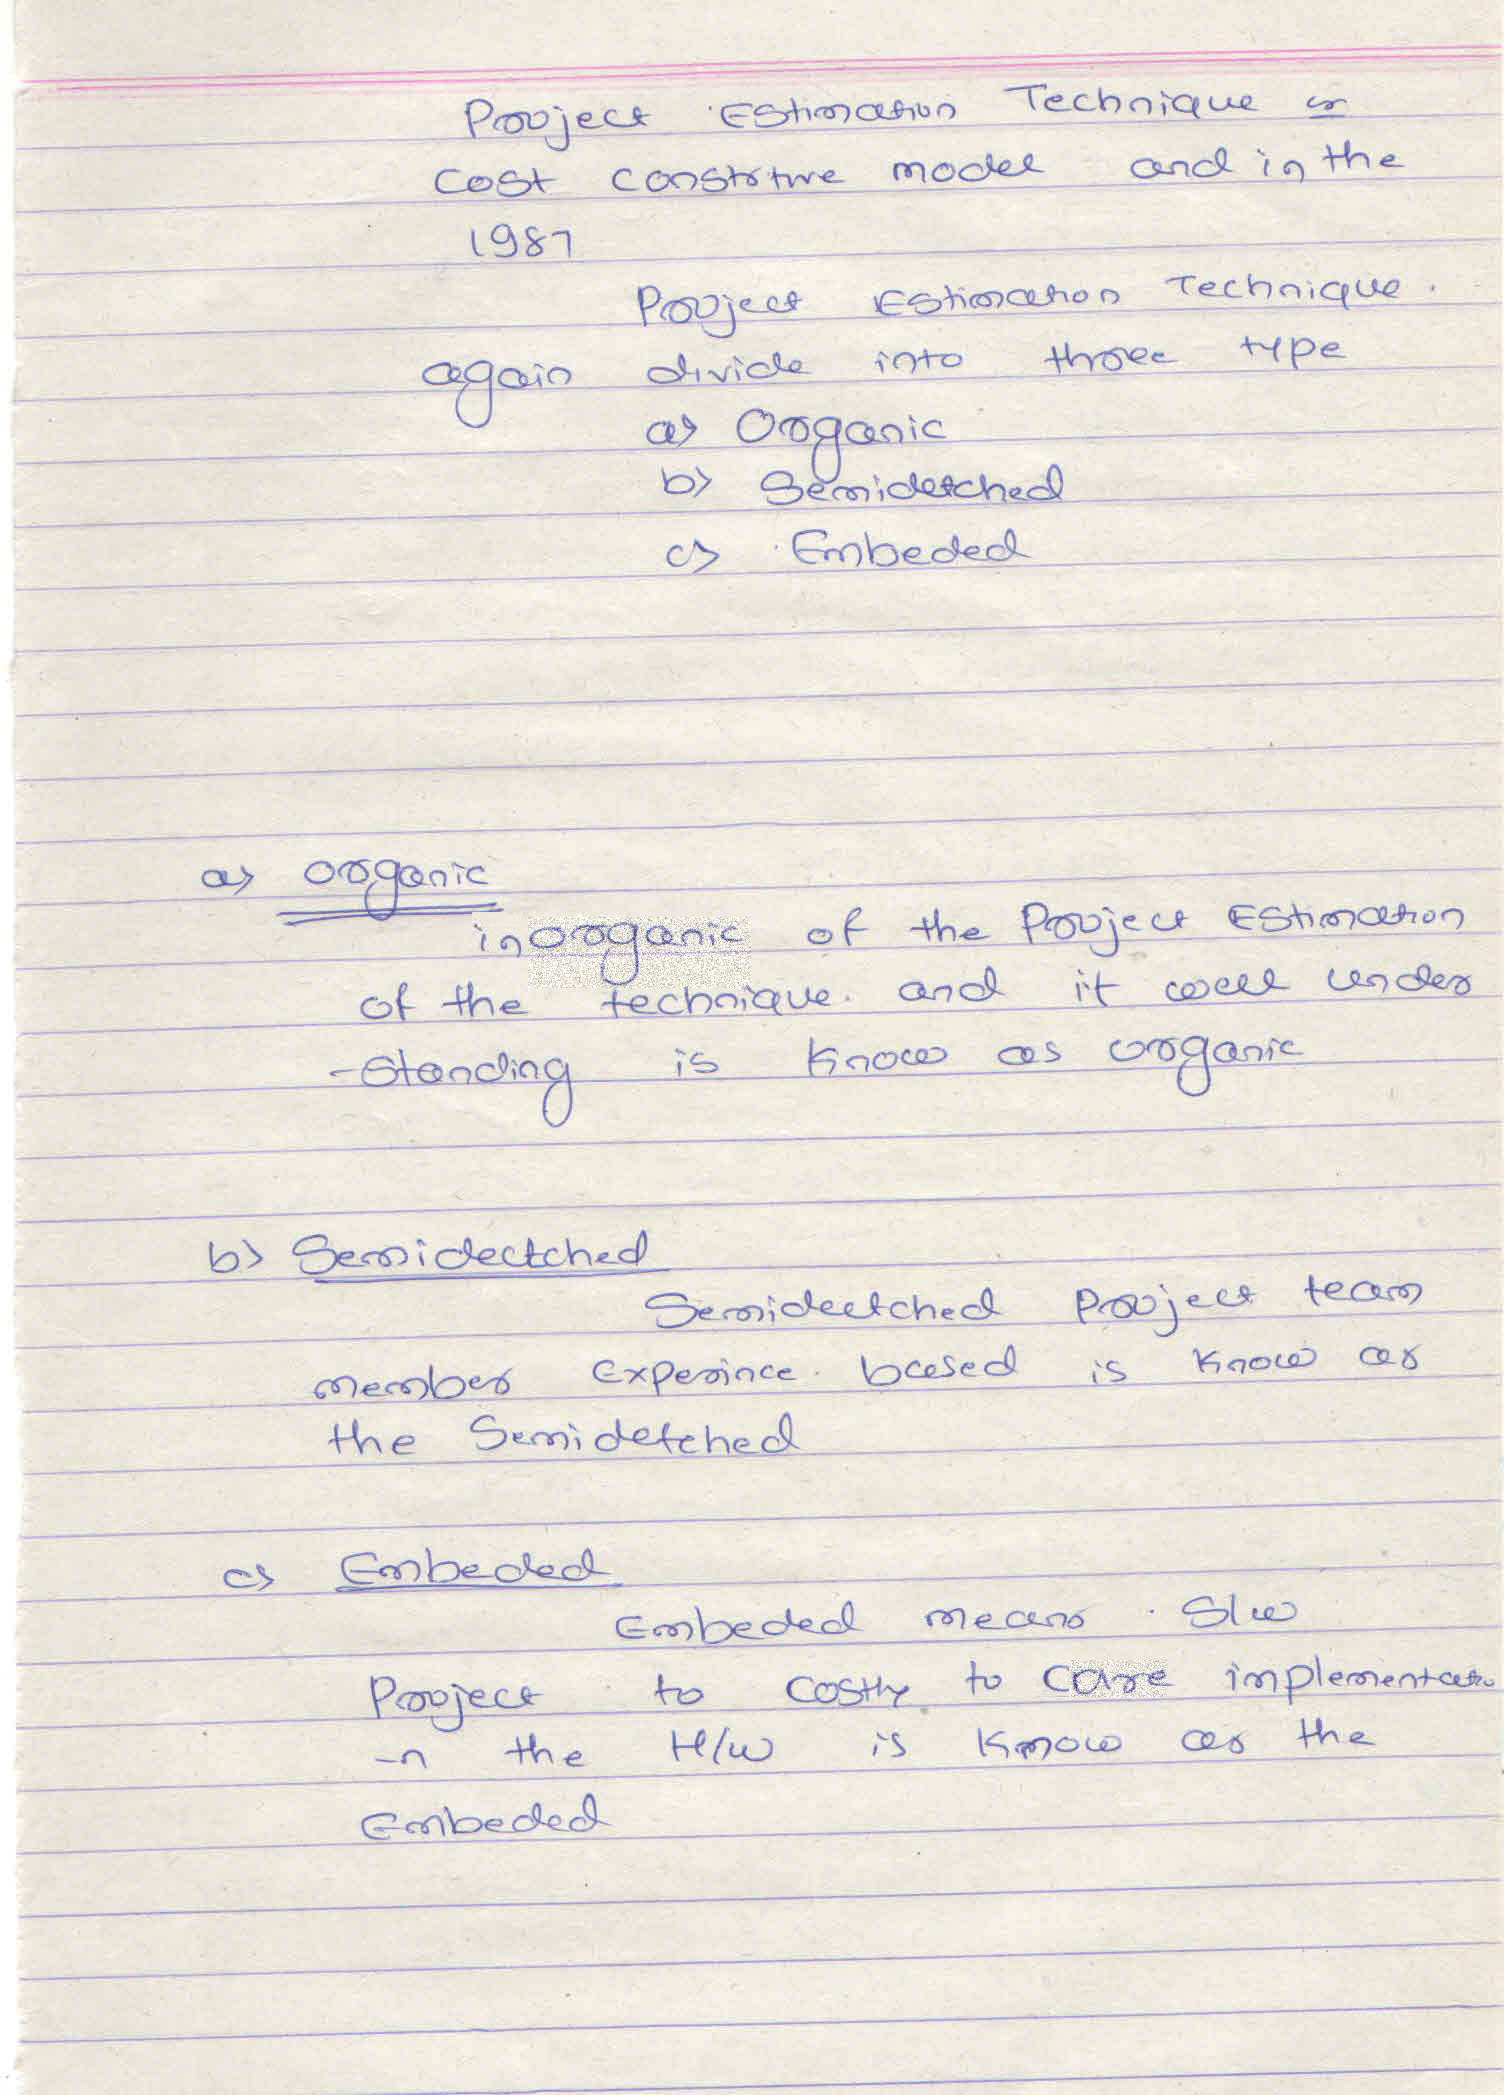 Project Estimation Technique is
cost constrtive model and in the
1987
Project Estimation Technique.
again divide into three type
a) Organic
b) Semidetched
c) Embeded
a) organic
in organic of the Project Estimation
of the technique. and it well under
-standing is know as organic
b) Semidectched
Semidectched Project team
member experince. based is know as
the Semidetched
c) Embeded
Embeded means S/w
Project to costly to care implementatio
-n the H/w is know as the
Embeded